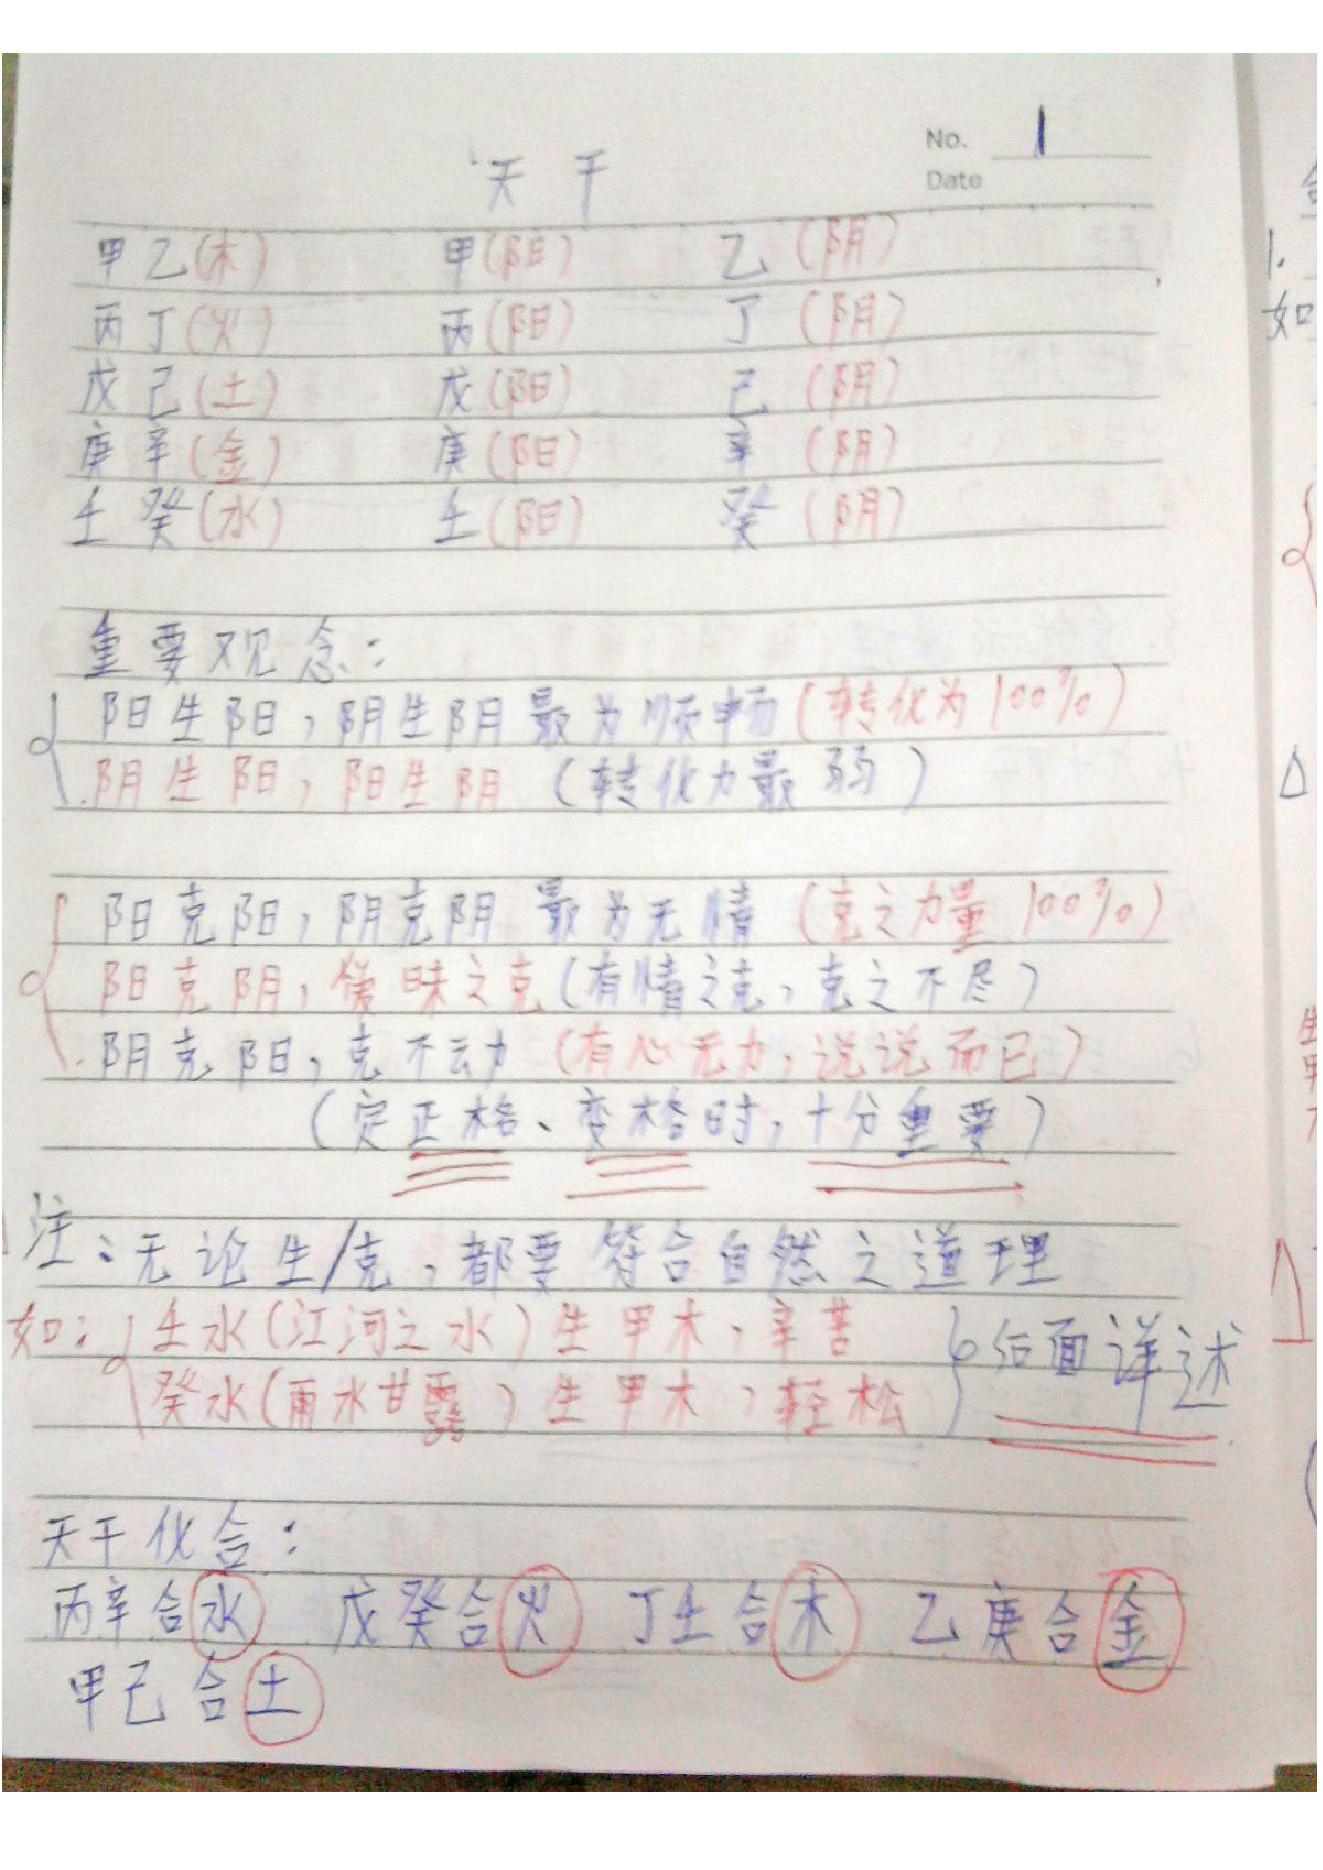 No. 1
天干
Date
甲乙(木) 甲(阳) 乙(阴)
丙丁(火) 丙(阳) 丁(阴)
戊己(土) 戊(阳) 己(阴)
庚辛(金) 庚(阳) 辛(阴)
壬癸(水) 壬(阳) 癸(阴)
重要观念:
阳生阳,阴生阴最为顺畅(转化为100%)
阴生阳,阳生阴(转化力最弱)
阳克阳,阴克阴 最为无情(克之力量100%)
阳克阴,暧昧之克(有情之克,克之不尽)
阴克阳,克不动(有心无力,说说而已)
(定正格、变格时,十分重要)
注:无论生/克,都要符合自然之道理
如:壬水(江河之水)生甲木,辛苦
癸水(雨水甘露)生甲木,轻松
后面详述
天干化合:
丙辛合水 戊癸合火 丁壬合木 乙庚合金
甲己合土
1.
如